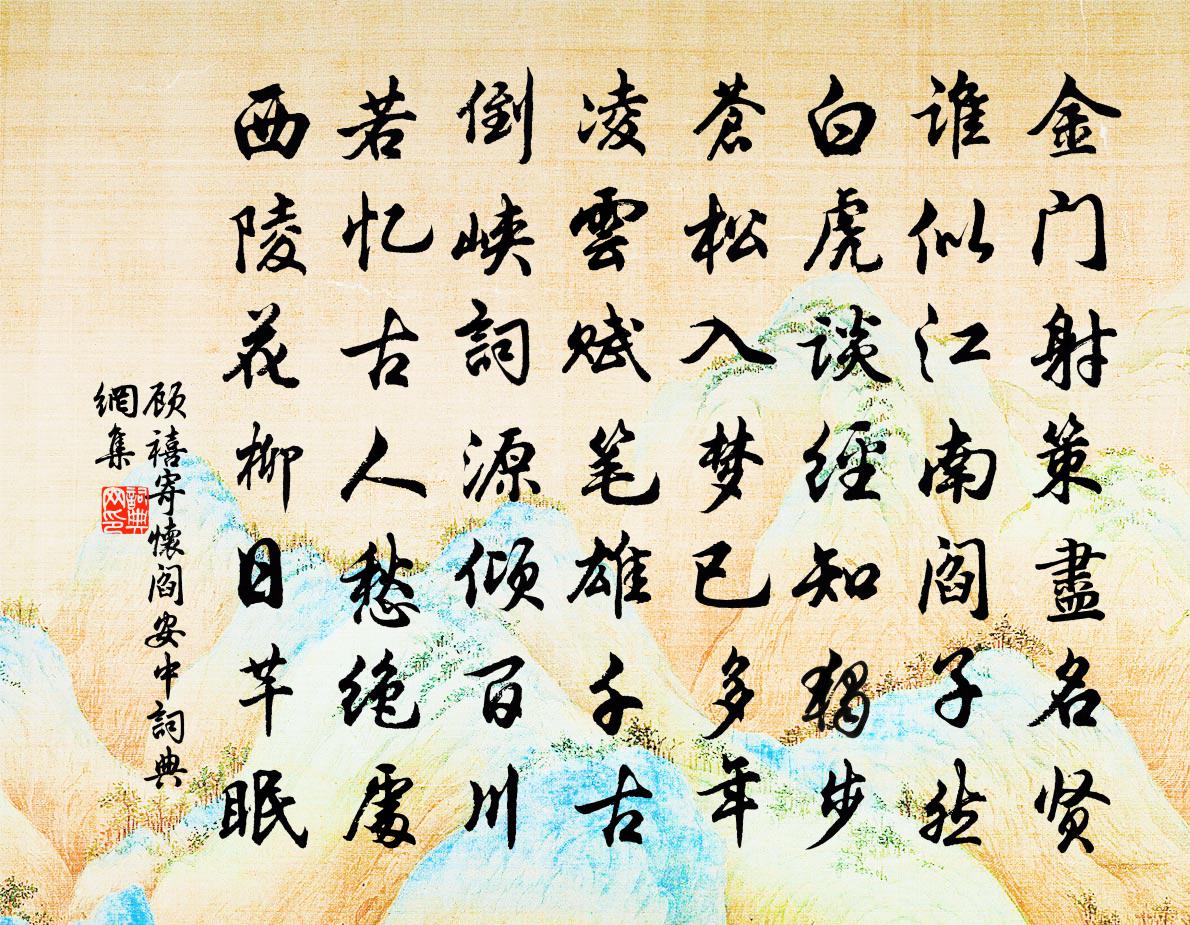 金门射策盡名贤
谁似江南阎子然
白虎谈經知獨步
蒼松入梦已多年
凌雲赋笔雄千古
倒峡詞源倾百川
若忆古人愁绝處
西陵花柳日芊眠
顾禧寄懷阎安中詞典
網集
詞典
网印